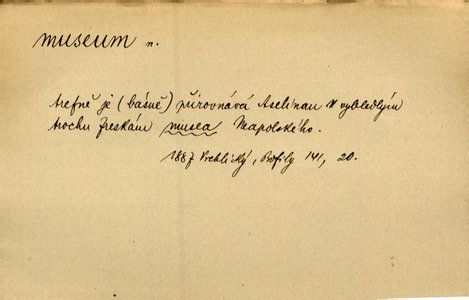 museum n.
trefně je (básně) přirovnává Asselineau k vybledlým
trochu freskám musea Neapolského.
1887 Vrchlický, Profily 141, 20.